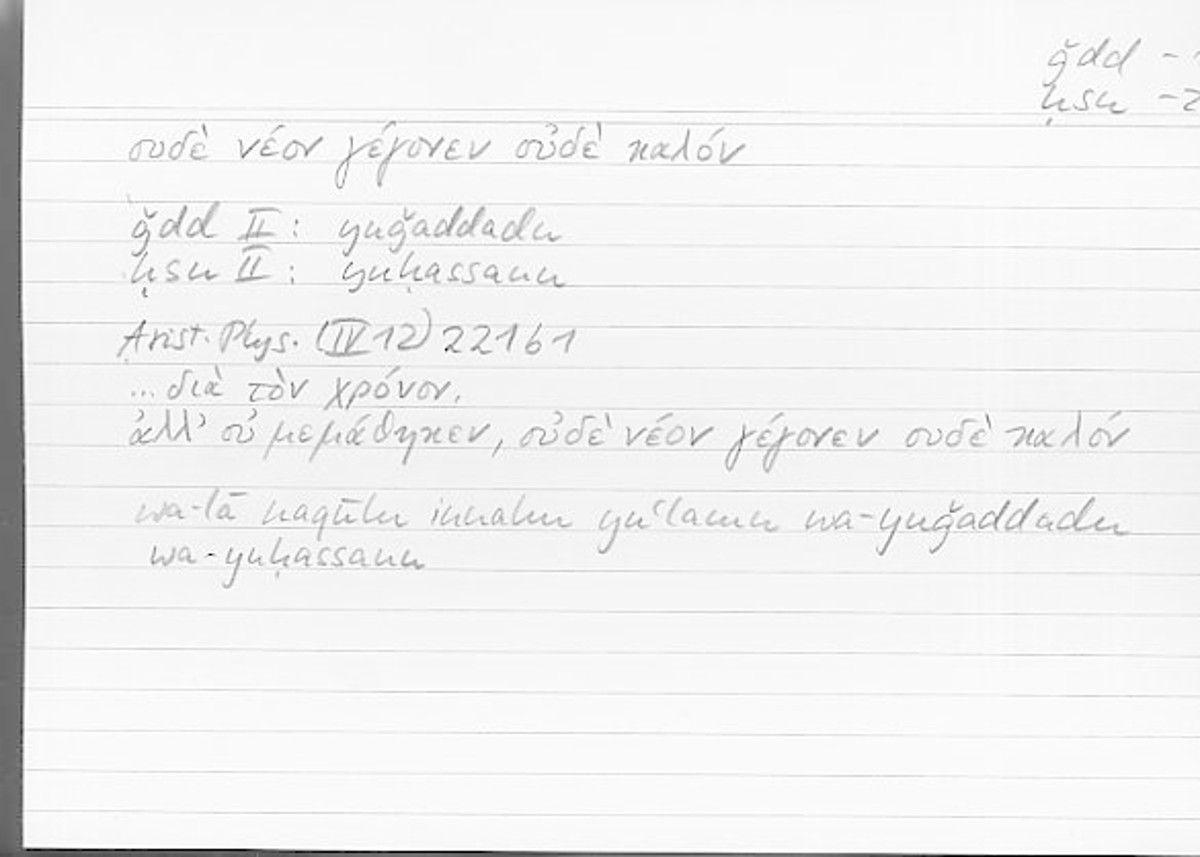 ǧdd -1
ḥsn -2
ουδὲ νέον γέγονεν οὐδὲ καλόν
ǧdd II : yuǧaddadu
ḥsn II : yuḥassanu
Arist. Phys. (IV 12) 221b1
... διὰ τὸν χρόνον.
ἀλλ' οὐ μεμάθηκεν, οὐδὲ νέον γέγονεν ουδὲ καλόν
wa-lā naqūlu innahu yuʿlamu wa-yuǧaddadu
wa-yuḥassanu